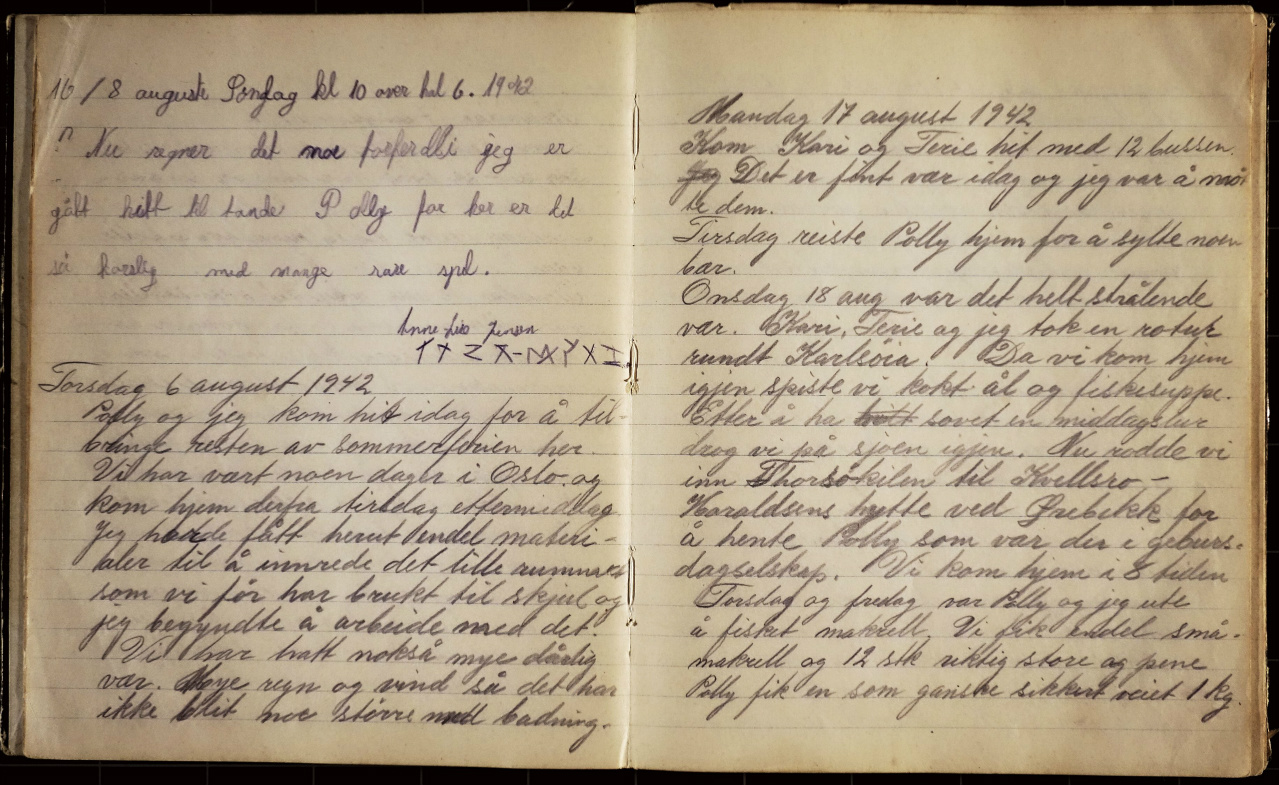 16/8 auguste Søndag kl 10 over hal 6. 1942
Nu regner det noe forferdli jeg er
gått hitt til tande Polly for her er det
så koselig med mange rare spel.
Anne-Lis Jensen
Torsdag 6 august 1942
Polly og jeg kom hit idag for å til-
bringe resten av sommerferien her.
Vi har vært noen dager i Oslo og
kom hjem derfra tirsdag ettermiddag.
Jeg hadde fått herut endel materi-
aler til å innrede det lille rummet
som vi før har brukt til skjul og
jeg begyndte å arbeide med det.
Vi har hatt nokså mye dårlig
vær. Mye regn og vind så det har
ikke blit noe større med badning.
Mandag 17 august 1942
Kom Kari og Terie hit med 12 bussen.
Jeg Det er fint vær idag og jeg var å mø
te dem.
Tirsdag reiste Polly hjem for å sylte noen
bær.
Onsdag 18 aug var det helt strålende
vær. Kari, Terie og jeg tok en rotur
rundt Karlsøia. Da vi kom hjem
igjen spiste vi kokt ål og fiskesuppe.
Etter å ha hvilt sovet en middagslur
drog vi på sjøen igjen. Nu rodde vi
inn Thorsøkilen til Kvellsro -
Haraldsens hytte ved Ørebekk for
å hente Polly som var der i geburs-
dagselskap. Vi kom hjem i 8 tiden
Torsdag og fredag var Polly og jeg ute
å fisket makrell. Vi fik endel små-
makrell og 12 stk riktig store og pene
Polly fik en som ganske sikkert veiet 1 kg.